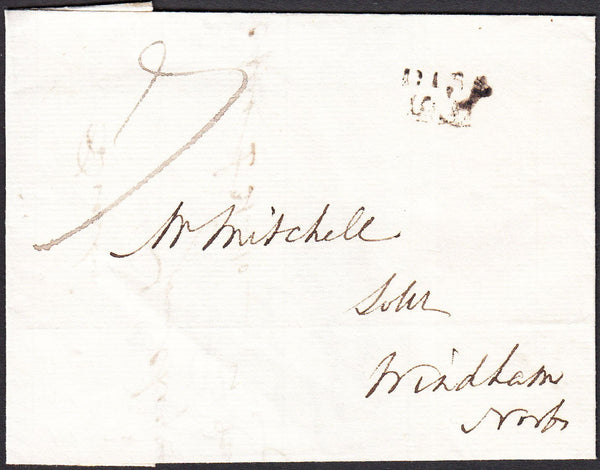 DISS
Mr Mitchell
Solr
Windham
Norfk